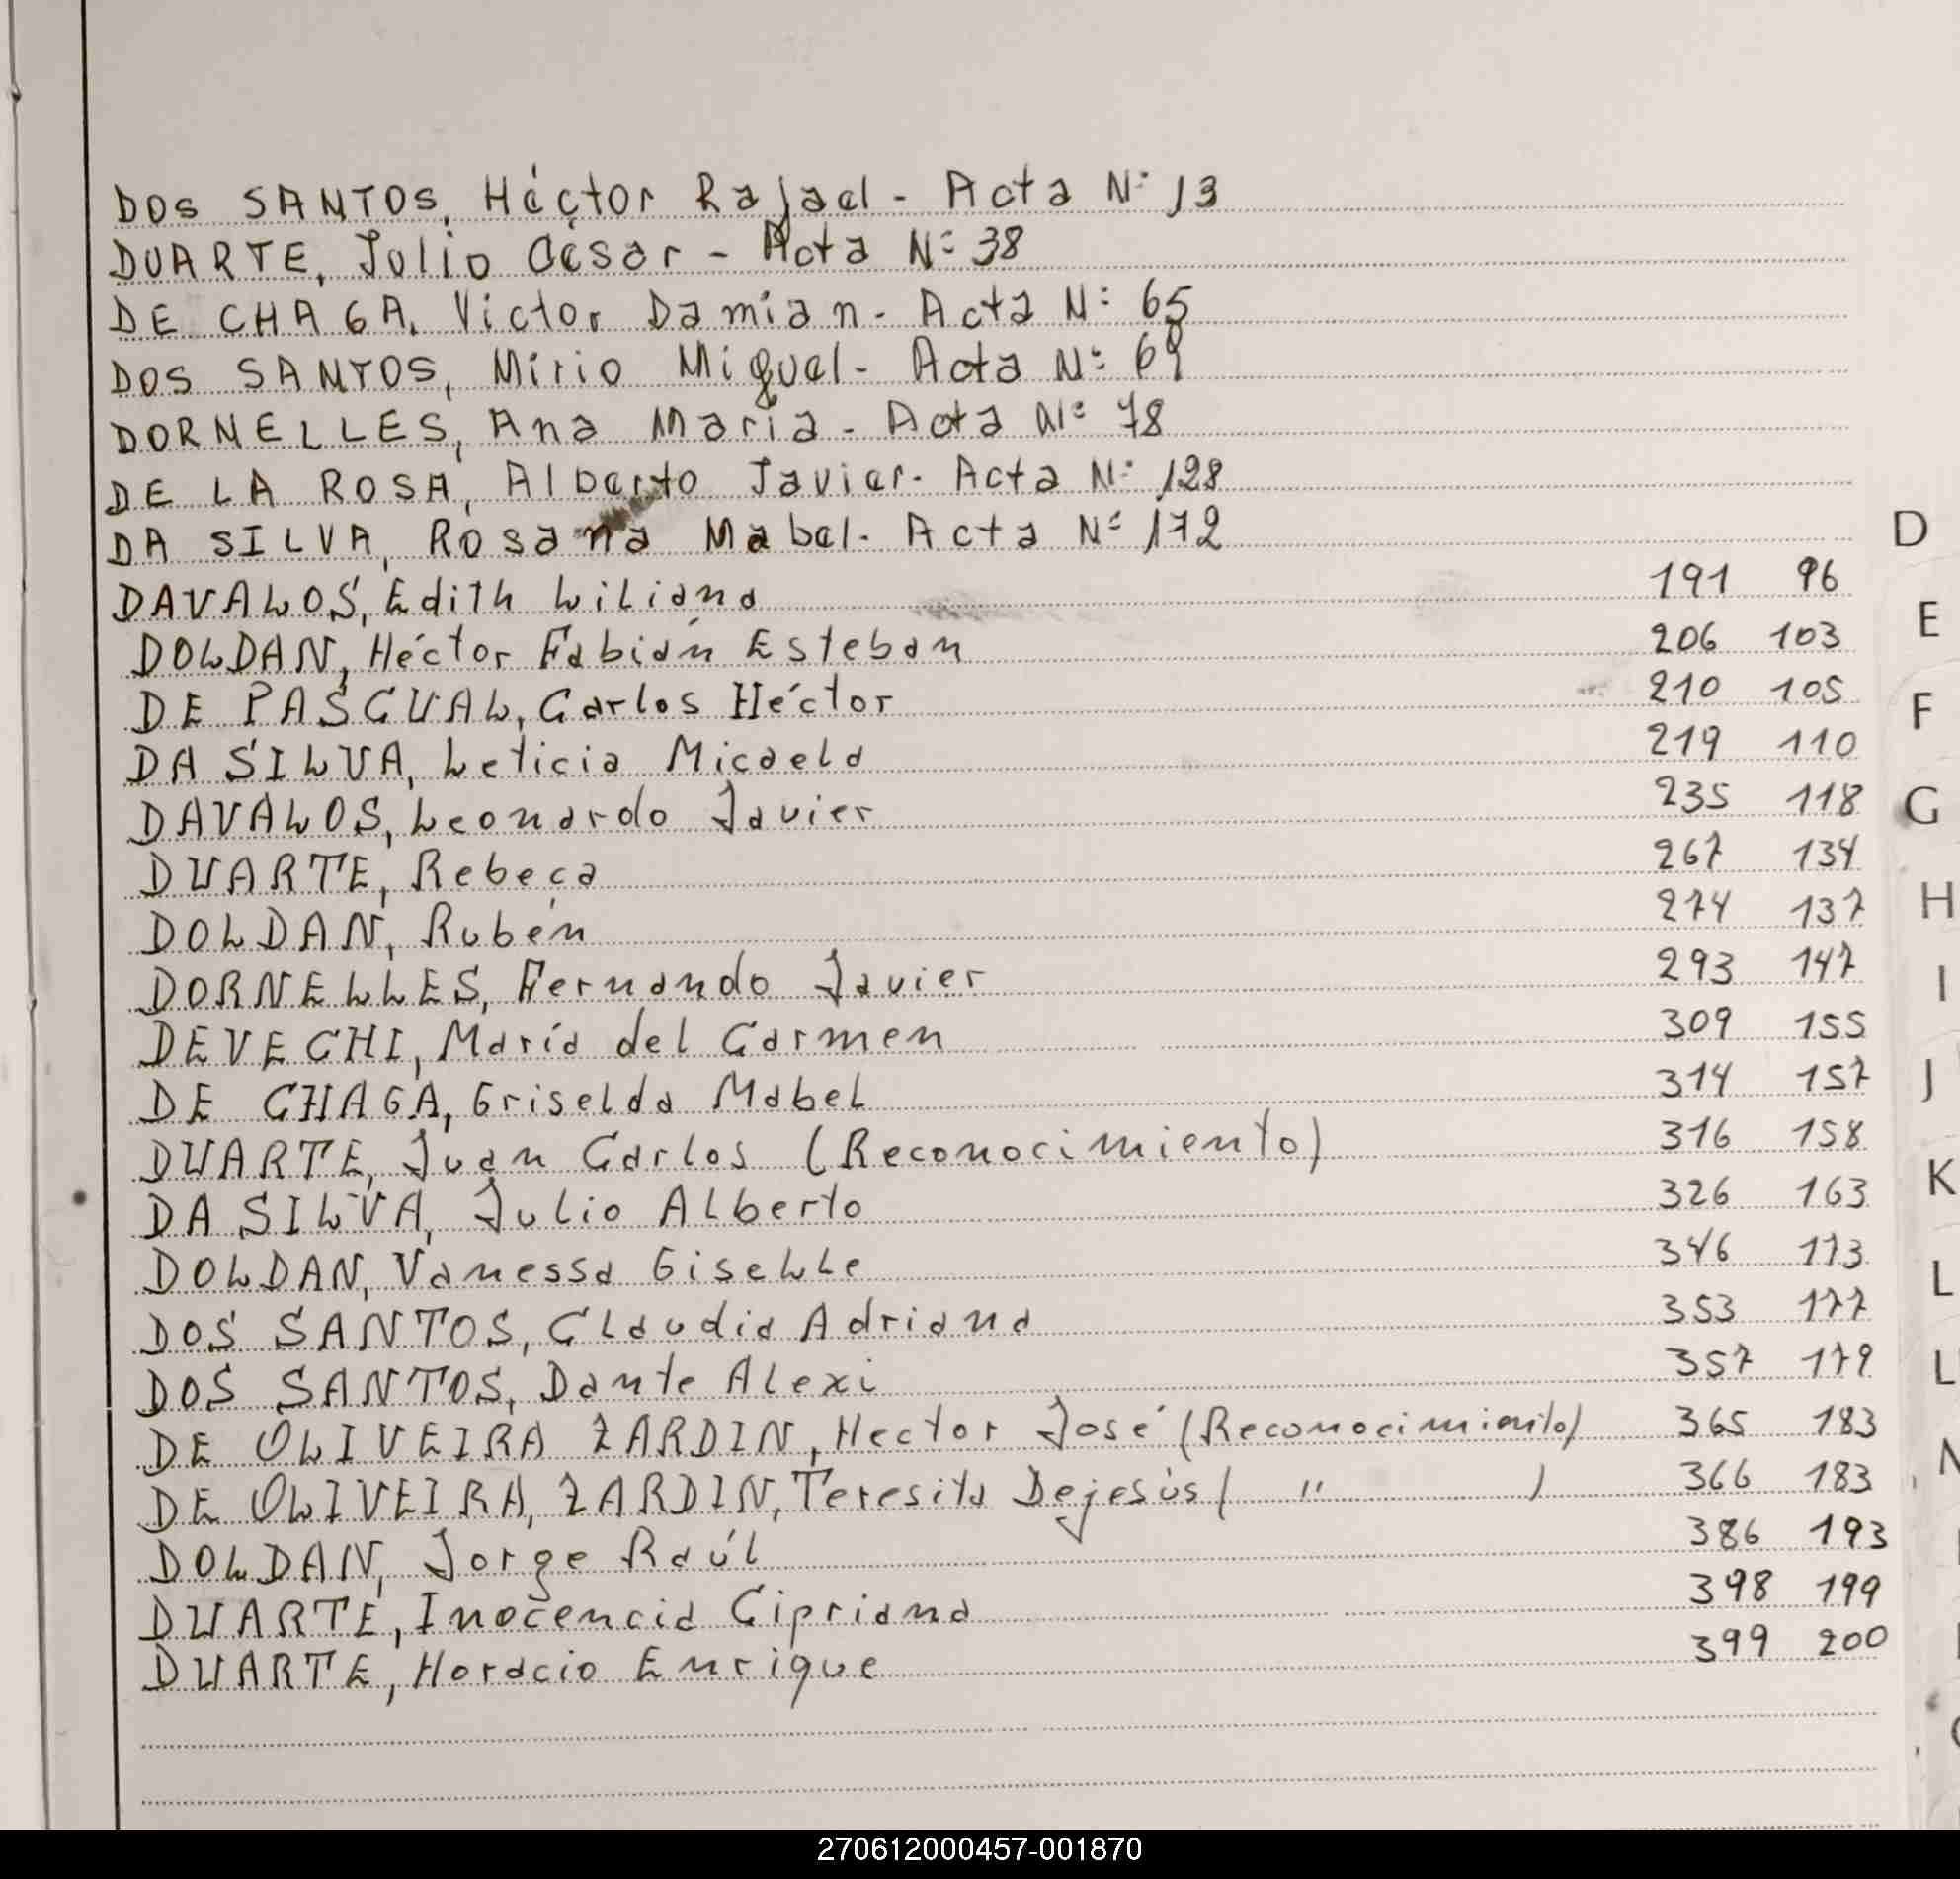 DOS SANTOS, Héctor Rafael - Acta N: 13
DUARTE, Julio César - Acta N: 38
DE CHAGA, Victor Damian - Acta N: 65
DOS SANTOS, Mirio Miguel - Acta N: 69
DORNELLES, Ana María - Acta N: 78
DE LA ROSA, Alberto Javier - Acta N: 128
DA SILVA, Rosana Mabel - Acta N: 172
D
DAVALOS, Edith Liliana 191 96
E
DOLDAN, Héctor Fabián Esteban 206 103
DE PASCUAL, Carlos Héctor 210 105
F
DA SILVA, Leticia Micaela 219 110
DAVALOS, Leonardo Javier 235 118
G
DUARTE, Rebeca 267 134
DOLDAN, Rubén 274 137
H
DORNELLES, Fernando Javier 293 147
I
DEVECHI, María del Carmen 309 155
DE CHAGA, Griselda Mabel 314 157
J
DUARTE, Juan Carlos (Reconocimiento) 316 158
DA SILVA, Julio Alberto 326 163
K
DOLDAN, Vanessa Giselle 346 173
L
DOS SANTOS, Claudia Adriana 353 177
DOS SANTOS, Dante Alexi 357 179
DE OLIVEIRA ZARDIN, Hector José (Reconocimiento) 365 183
DE OLIVEIRA, ZARDIN, Teresita Dejesús ( " ) 366 183
DOLDAN, Jorge Raúl 386 193
DUARTE, Inocencia Cipriana 398 199
DUARTE, Horacio Enrique 399 200
270612000457-001870